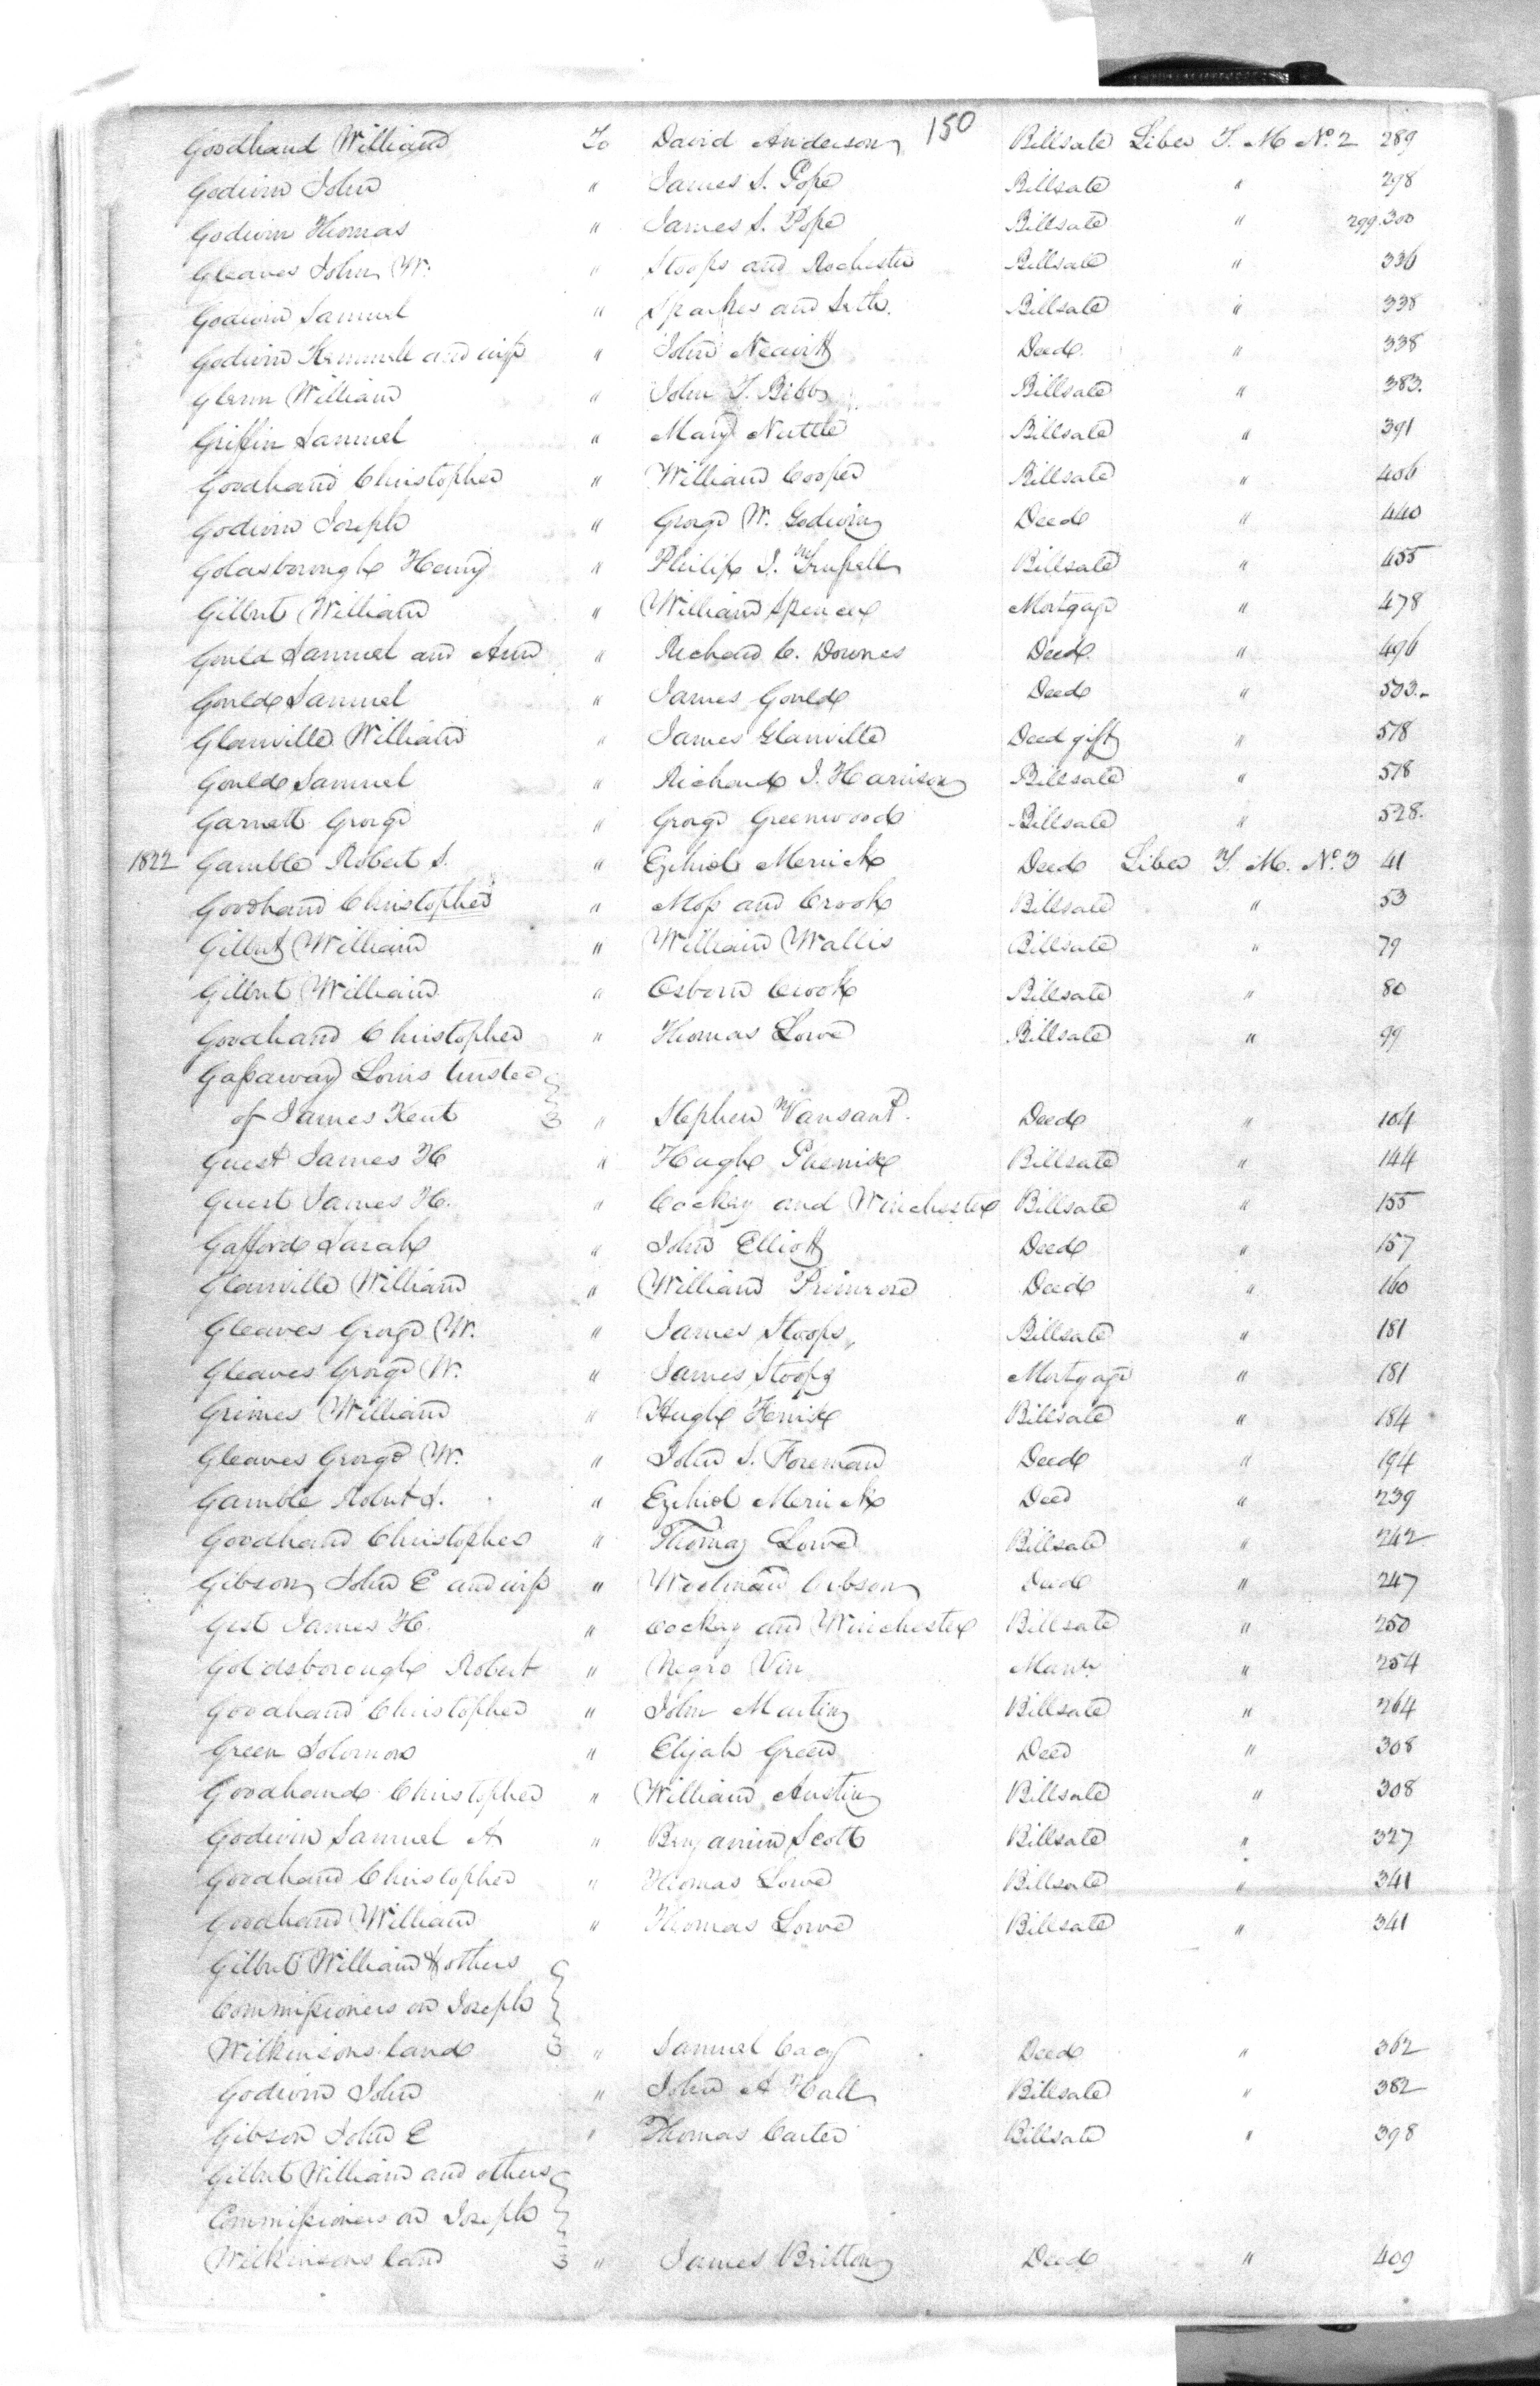 150
Goodhand William To David Anderson Billsale Liber T. M No. 2 289
Godwin John " James S. Pope Billsale " 298
Godwin Thomas " James S. Pope Billsale " 299.300
Gleaves John W. " Stoops and Rochester Billsale " 336
Godwin Samuel " Sparkes and Seth. Billsale " 338
Godwin Kimmell and wife " John Neavitt Deed. " 338
Glenn William " John T. Bibby Billsale " 383.
Griffin Samuel " Mary Nuttle Billsale " 391
Goodhand Christopher " William Cooper Billsale " 406
Godwin Joseph " George W. Godwin Deed " 440
Goldsborough Henry " Philip J. Billsale " 455
Gilbert William " William Spencer Mortgage " 478
Gould Samuel and Ann " Richard C. Downes Deed. " 496
Gould Samuel " James Gould Deed " 503.
Glanville William " James Glanville Deed gift " 518
Gould Samuel " Richard I. Harrison Billsale " 518
Garnett George " George Greenwood Billsale " 528.
1822 Gamble Robert S. " Ezekiel Merrick Deed Liber T. M. No. 3 41
Goodhand Christopher " Moss and Crook Billsale " 53
Gilbert William " William Wallis Billsale " 79
Gilbert William " Osborn Crook Billsale " 80
Goodhand Christopher " Thomas Lowe Billsale " 99
Gassaway Louis trustee
of James Kent " Stephen Vansant. Deed " 104
Guest James H " Hugh Phenix Billsale " 144
Guest James H. " Cockey and Winchester Billsale " 155
Gafford Sarah " John Elliott Deed " 157
Glanville William " William Primrose Deed " 160
Gleaves George W. " James Stoops Billsale " 181
Gleaves George W. " James Stoops Mortgage " 181
Grimes William " Hugh Fenix Billsale " 184
Gleaves George W. " John S. Foreman Deed " 194
Gamble Robert S. " Ezekiel Merrick Deed " 239
Goodhand Christopher " Thomas Lowe Billsale " 242
Gibson John E and wife " Woolman Gibson Deed " 247
Gest James H. " Cockey and Winchester Billsale " 250
Goldsborough Robert " Negro Vin Manr " 254
Goodhand Christopher " John Martin Billsale " 264
Green Solomon " Elijah Green Deed " 308
Goodhand Christopher " William Austin Billsale " 308
Godwin Samuel A " Benjamin Scott Billsale " 327
Goodhand Christopher " Thomas Lowe Billsale " 341
Goodhand William " Thomas Lowe Billsale " 341
Gilbert William & others
Commissioners on Joseph
Wilkinsons land " Samuel Deed " 362
Godwin John " John A Hall Billsale " 382
Gibson John E " Thomas Carter Billsale " 398
Gilbert William and others
Commissioners on Joseph
Wilkinsons land " James Britton Deed " 409